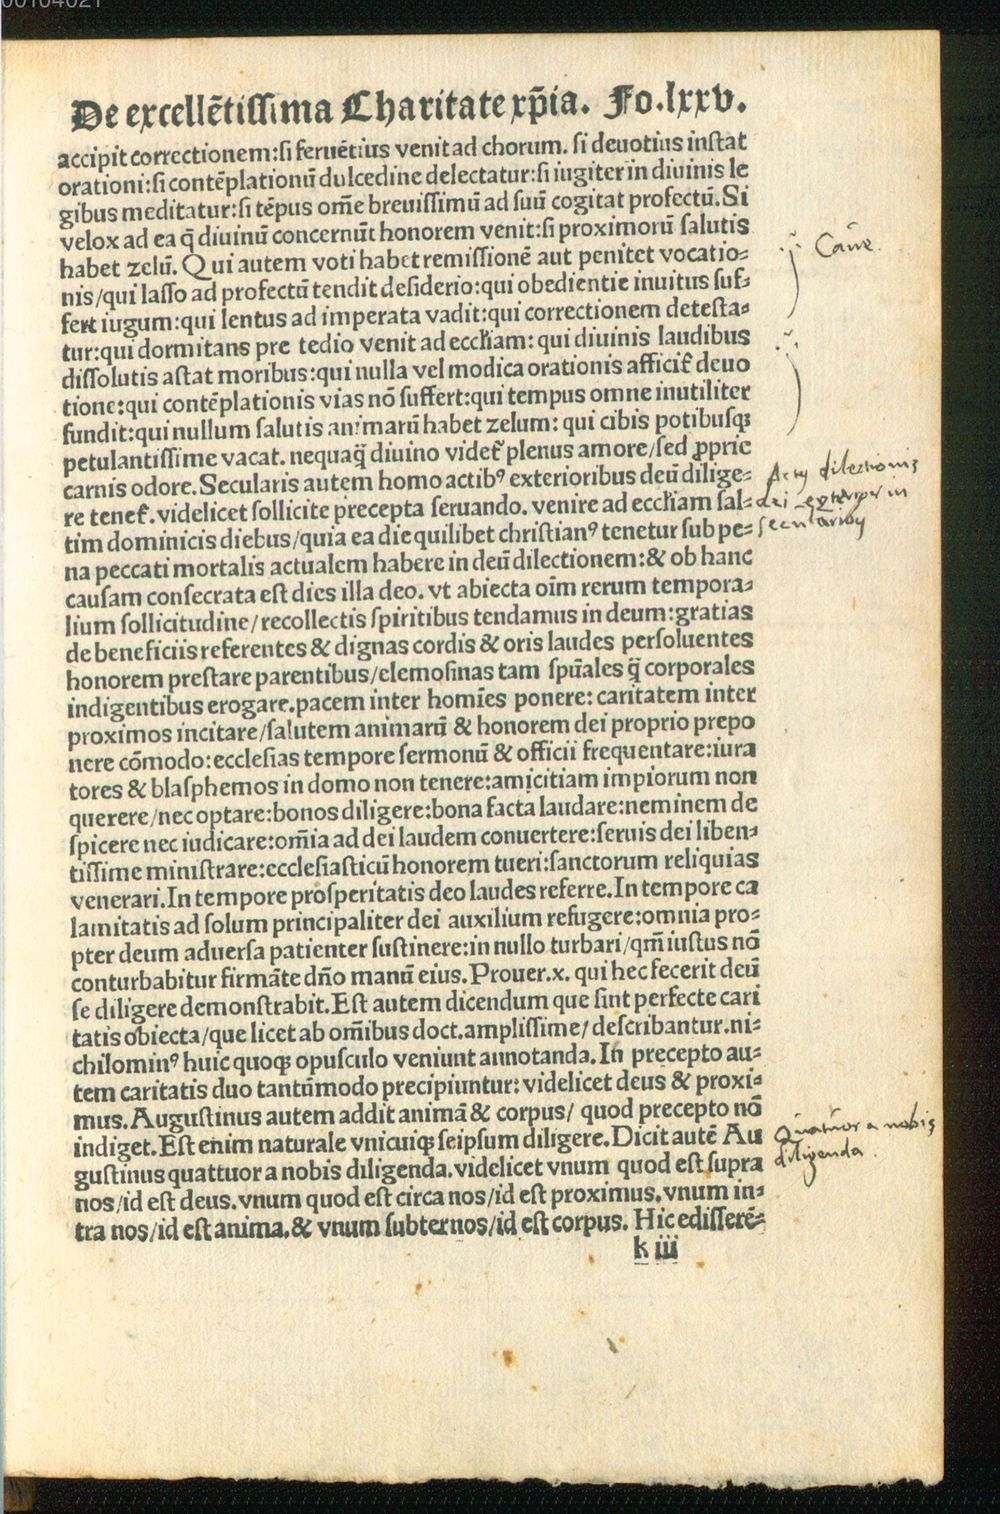 00104021
De excellētissima Charitate xp̄ia. Fo.lxxv.
accipit correctionem:si feruētius venit ad chorum. si deuotius instat
orationi:si contēplationū dulcedine delectatur:si iugiter in diuinis le
gibus meditatur:si tēpus om̄e breuissimū ad suū cogitat profectū. Si
velox ad ea q̄ diuinū concernūt honorem venit:si proximorū salutis
habet zelū. Qui autem voti habet remissionē aut penitet vocatio⸗
nis/qui lasso ad profectū tendit desiderio:qui obedientie inuitus suf⸗
fert iugum:qui lentus ad imperata vadit:qui correctionem detesta⸗
tur:qui dormitans pre tedio venit ad eccl̄iam: qui diuinis laudibus
dissolutis astat moribus:qui nulla vel modica orationis afficit᷑ deuo
tione:qui contēplationis vias nō suffert:qui tempus omne inutiliter
fundit:qui nullum salutis animarū habet zelum: qui cibis potibusqꝫ
petulantissime vacat. nequaq̄ diuino videt᷑ plenus amore/sed ꝓprie
carnis odore. Secularis autem homo actibꝰ exterioribus deū dilige⸗
re tenet᷑. videlicet sollicite precepta seruando. venire ad eccl̄iam sal⸗
tim dominicis diebus/quia ea die quilibet christianꝰ tenetur sub pe⸗
na peccati mortalis actualem habere in deū dilectionem:& ob hanc
causam consecrata est dies illa deo. vt abiecta oīm rerum tempora⸗
lium sollicitudine/recollectis spiritibus tendamus in deum:gratias
de beneficiis referentes & dignas cordis & oris laudes persoluentes
honorem prestare parentibus/elemosinas tam spūales q̄ corporales
indigentibus erogare.pacem inter homīes ponere: caritatem inter
proximos incitare/salutem animarū & honorem dei proprio prepo
nere cōmodo:ecclesias tempore sermonū & officii frequentare:iura
tores & blasphemos in domo non tenere:amicitiam impiorum non
querere/nec optare:bonos diligere:bona facta laudare:neminem de
spicere nec iudicare:om̄ia ad dei laudem conuertere:seruis dei liben⸗
tissime ministrare:ecclesiasticū honorem tueri:sanctorum reliquias
venerari. In tempore prosperitatis deo laudes referre. In tempore ca
lamitatis ad solum principaliter dei auxilium refugere:omnia pro⸗
pter deum aduersa patienter sustinere:in nullo turbari/qm̄ iustus nō
conturbabitur firmāte dn̄o manū eius. Prouer.x. qui hec fecerit deū
se diligere demonstrabit. Est autem dicendum que sint perfecte cari
tatis obiecta/que licet ab om̄ibus doct.amplissime/ describantur.ni⸗
chilominꝰ huic quoqꝫ opusculo veniunt annotanda. In precepto au⸗
tem caritatis duo tantūmodo precipiuntur: videlicet deus & proxi⸗
mus. Augustinus autem addit animā & corpus/ quod precepto nō
indiget. Est enim naturale vnicuiqꝫ seipsum diligere. Dicit autē Au
gustinus quattuor a nobis diligenda. videlicet vnum quod est supra
nos/id est deus. vnum quod est circa nos/id est proximus. vnum in⸗
tra nos/id est anima.& vnum subter nos/id est corpus. Hic edisserē⸗
k iii
dilectionis
dei exterior in
Quatuor a nobis
diligenda.